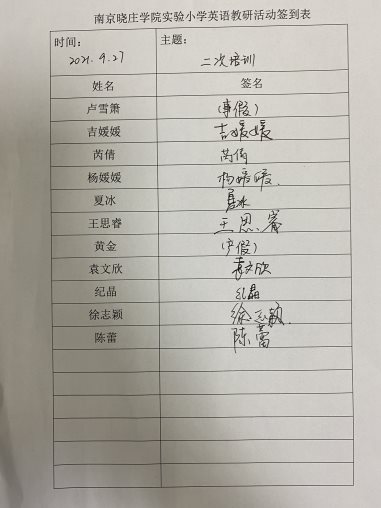 南京晓庄学院实验小学英语教研活动签到表
时间： 主题：
2021.9.27 二次培训
姓名 签名
卢雪箫 （事假）
吉媛媛 吉媛媛
芮倩 芮倩
杨媛媛 杨媛媛
夏冰 夏冰
王思睿 王思睿
黄金 （产假）
袁文欣 袁文欣
纪晶 纪晶
徐志颖 徐志颖
陈蕾 陈蕾